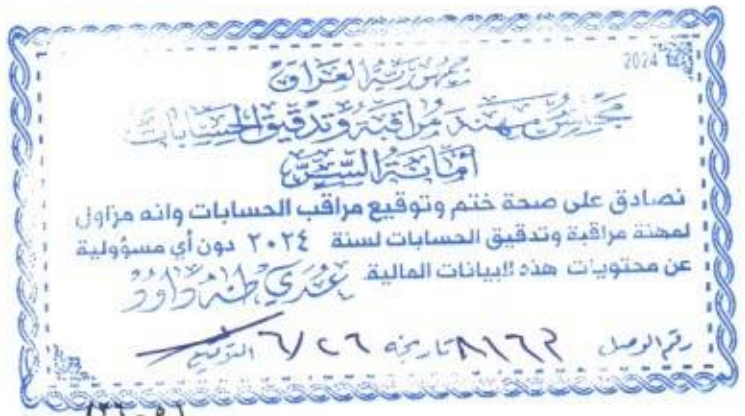 2024
جمهورية العراق
مجلس مهنة مراقبة وتدقيق الحسابات
أمانة السر
نصادق على صحة ختم وتوقيع مراقب الحسابات وانه مزاول
لمهنة مراقبة وتدقيق الحسابات لسنة ٢٠٢٤ دون أي مسؤولية
عن محتويات هذه البيانات المالية
عدي طه داود
رقم الوصل ٨١٦٢ تاريخه ٦/٢٦ التوقيع